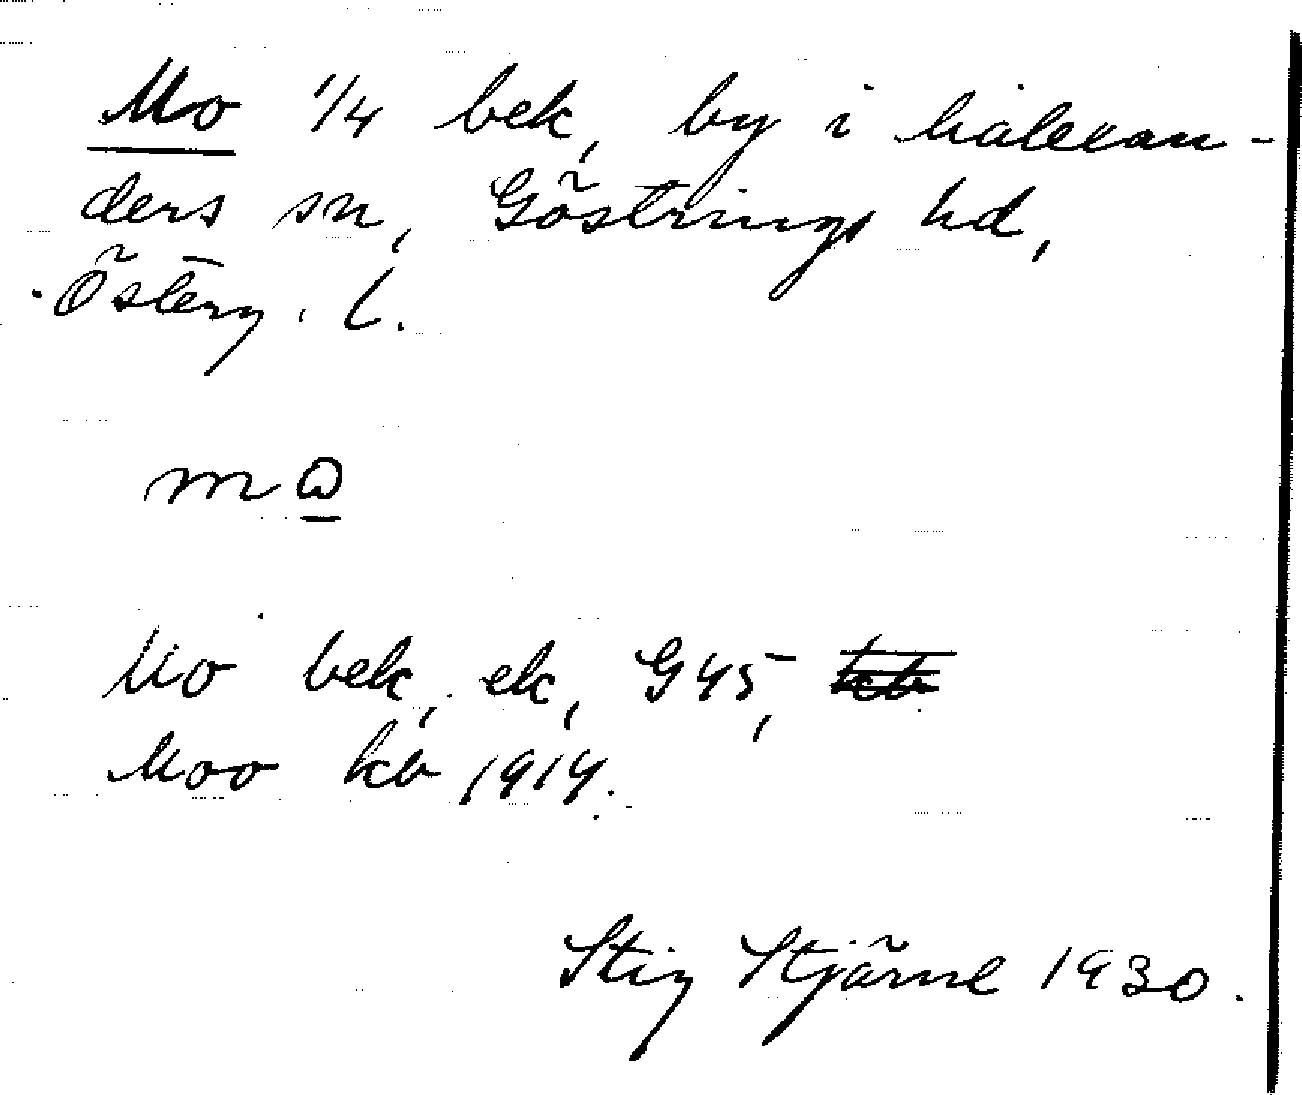 Mo 1/4 bek, by i Källeran-
ders sn, Göstrings hd,
Österg. l.
mω
Mo bek, ek, G45, kb
Moo kb 1919.
Stig Stjärne 1930.